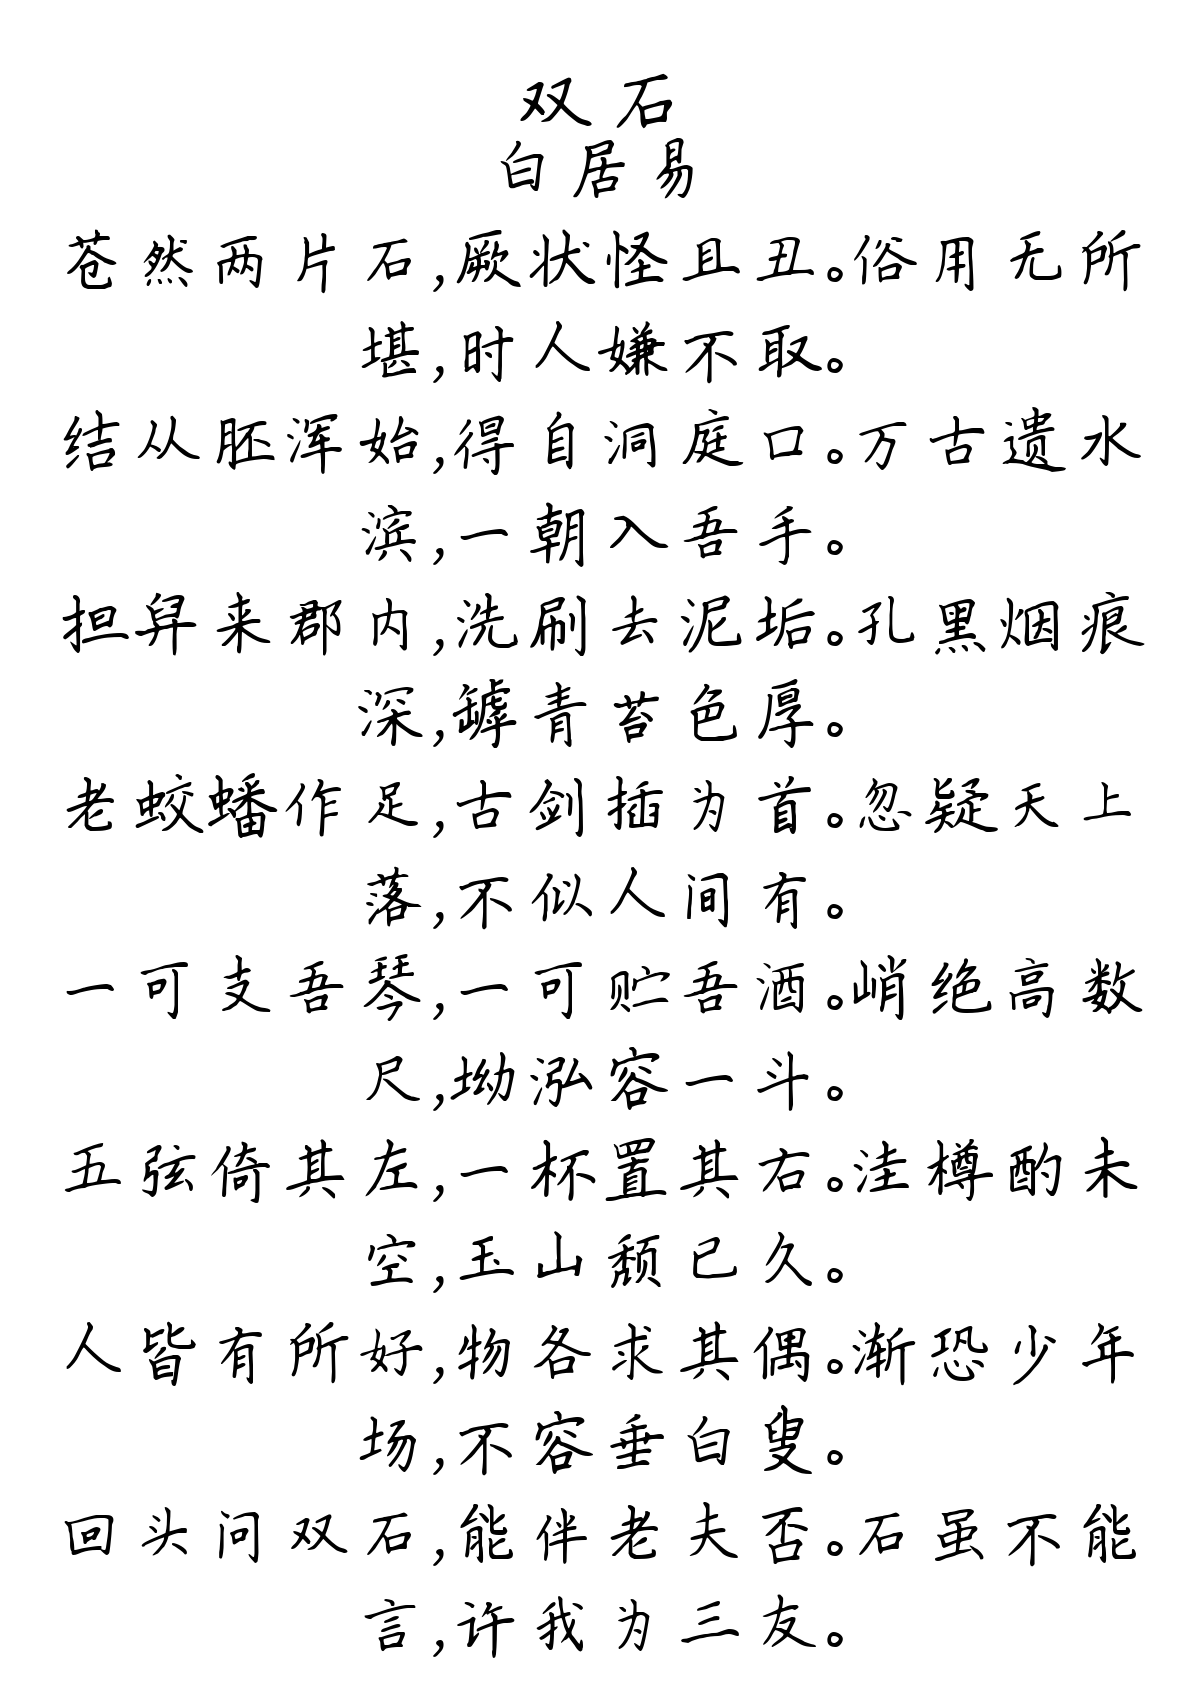 双石
白居易
苍然两片石,厥状怪且丑。俗用无所
堪,时人嫌不取。
结从胚浑始,得自洞庭口。万古遗水
滨,一朝入吾手。
担舁来郡内,洗刷去泥垢。孔黑烟痕
深,罅青苔色厚。
老蛟蟠作足,古剑插为首。忽疑天上
落,不似人间有。
一可支吾琴,一可贮吾酒。峭绝高数
尺,坳泓容一斗。
五弦倚其左,一杯置其右。洼樽酌未
空,玉山颓已久。
人皆有所好,物各求其偶。渐恐少年
场,不容垂白叟。
回头问双石,能伴老夫否。石虽不能
言,许我为三友。